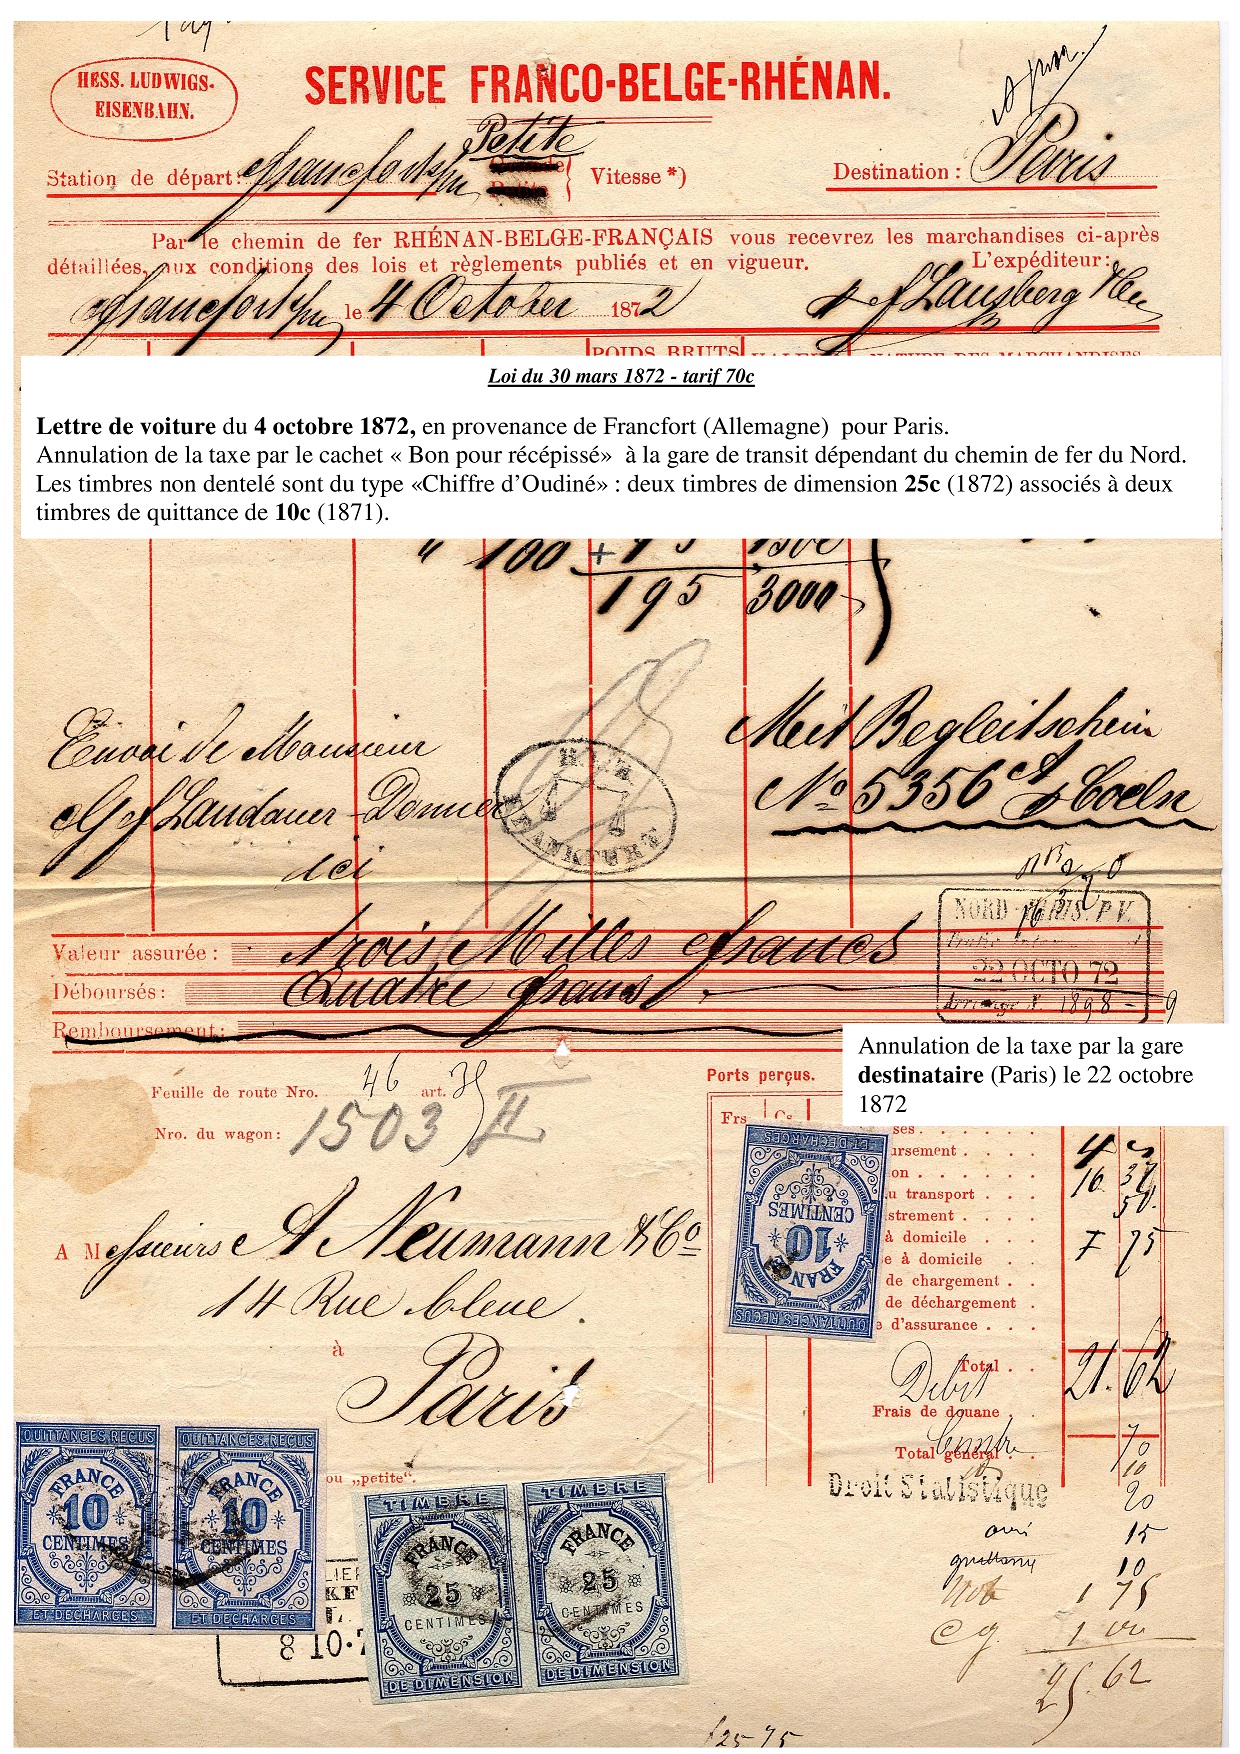 HESS. LUDWIGS-
EISENBAHN.
SERVICE FRANCO-BELGE-RHÉNAN.
Petite
Station de départ: Francfort s/m Vitesse *) Destination : Paris
Par le chemin de fer RHÉNAN-BELGE-FRANÇAIS vous recevrez les marchandises ci-après
détaillées, aux conditions des lois et règlements publiés et en vigueur. L'expéditeur:
Francfort s/m le 4 October 1872
POIDS BRUTS
NATURE DES MARCHANDISES
Loi du 30 mars 1872 - tarif 70c
Lettre de voiture du 4 octobre 1872, en provenance de Francfort (Allemagne) pour Paris.
Annulation de la taxe par le cachet « Bon pour récépissé» à la gare de transit dépendant du chemin de fer du Nord.
Les timbres non dentelé sont du type «Chiffre d'Oudiné» : deux timbres de dimension 25c (1872) associés à deux
timbres de quittance de 10c (1871).
" 100 + 95 1500
195 3000
Envoi de Monsieur
Landauer-Donner
ici
Mit Begleitschein
No 5356 Coeln
FRANKFURT
NORD-PARIS. P.V.
22 OCTO 72
Arrivage N. 1898
Valeur assurée : trois Milles francs
Déboursés : Quatre francs
Remboursement:
Annulation de la taxe par la gare
destinataire (Paris) le 22 octobre
1872
Feuille de route Nro. 46 art.
Nro. du wagon: 1503 II
Ports perçus.
Frs Cs
ursement . . . . 4
on . . . . . . 16 37
u transport . . . 50
strement . . . .
à domicile . . . 75
e à domicile . .
de chargement . .
de déchargement .
e d'assurance . . .
Total . . 21.62
Debit
Frais de douane . .
Total général . . 70
10
Droit Statistique 20
15
10
1 75
1 00
25.62
A Messieurs A Neumann & Co
14 Rue bleue.
à
Paris
ou „petite".
ET DECHARGES
CENTIMES
10
FRANCE
QUITTANCES REÇUS
QUITTANCES REÇUS
FRANCE
10
CENTIMES
ET DECHARGES
QUITTANCES REÇUS
FRANCE
10
CENTIMES
ET DECHARGES
TIMBRE
FRANCE
25
CENTIMES
DE DIMENSION
TIMBRE
FRANCE
25
CENTIMES
DE DIMENSION
8 10.7